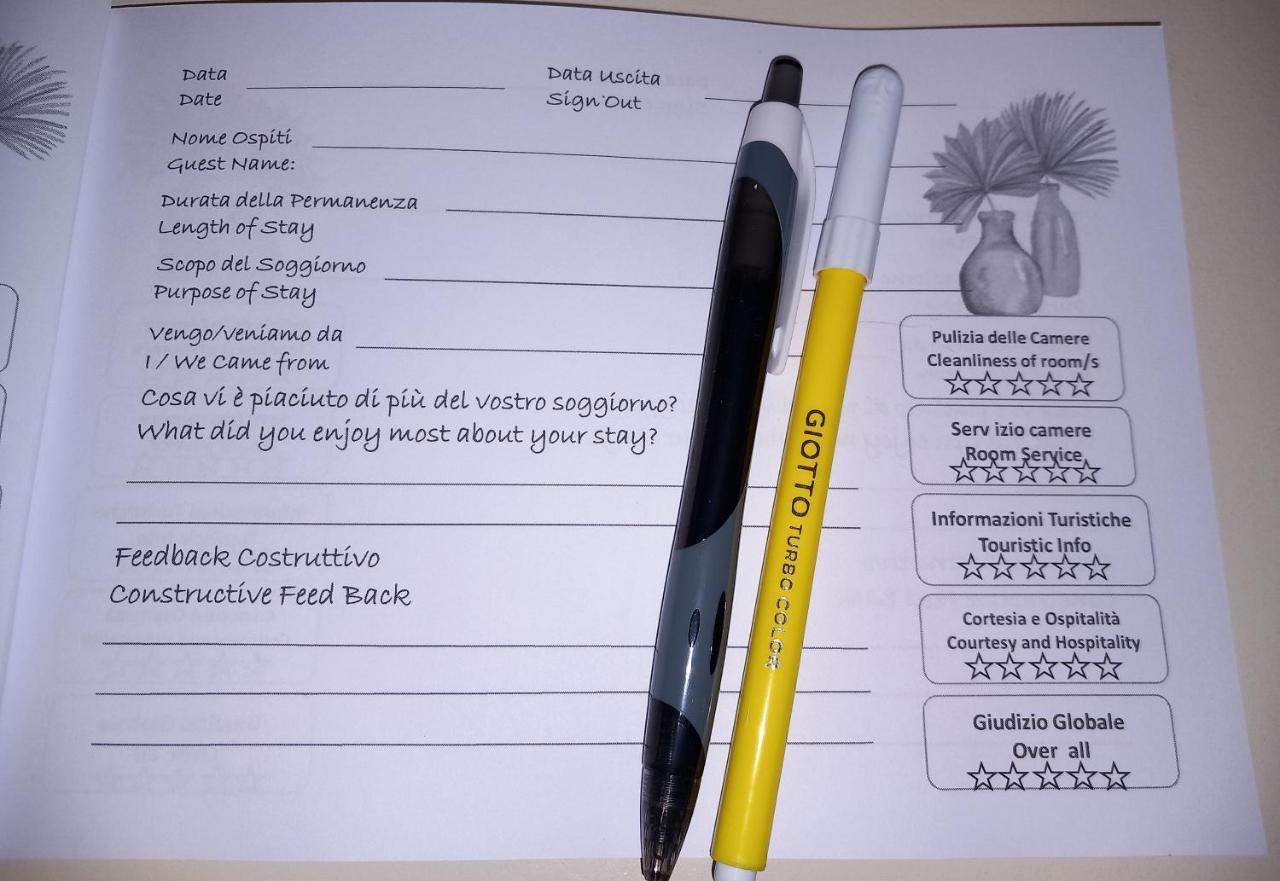 Data
Date
Data Uscita
Sign Out
Nome Ospiti
Guest Name:
Durata della Permanenza
Length of Stay
Scopo del Soggiorno
Purpose of Stay
Vengo/veniamo da
I / We Came from
Cosa vi è piaciuto di più del vostro soggiorno?
What did you enjoy most about your stay?
Feedback Costruttivo
Constructive Feed Back
GIOTTO TURBO COLOR
Pulizia delle Camere
Cleanliness of room/s
Serv izio camere
Room Service
Informazioni Turistiche
Touristic Info
Cortesia e Ospitalità
Courtesy and Hospitality
Giudizio Globale
Over all